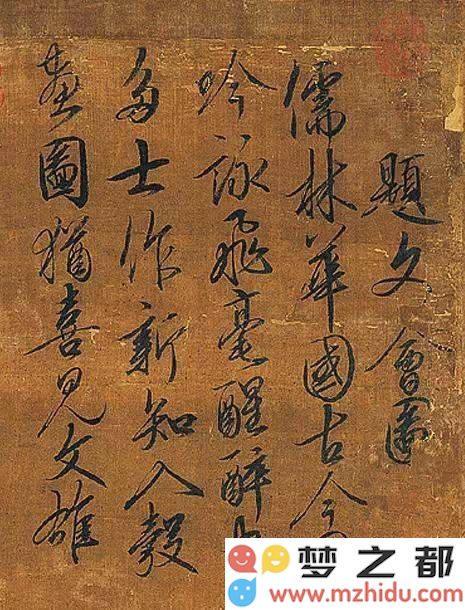 題文會圖
儒林華國古今
吟詠飛毫醒醉
多士作新知入彀
畫圖猶喜見文雄
梦之都
www.mzhidu.com